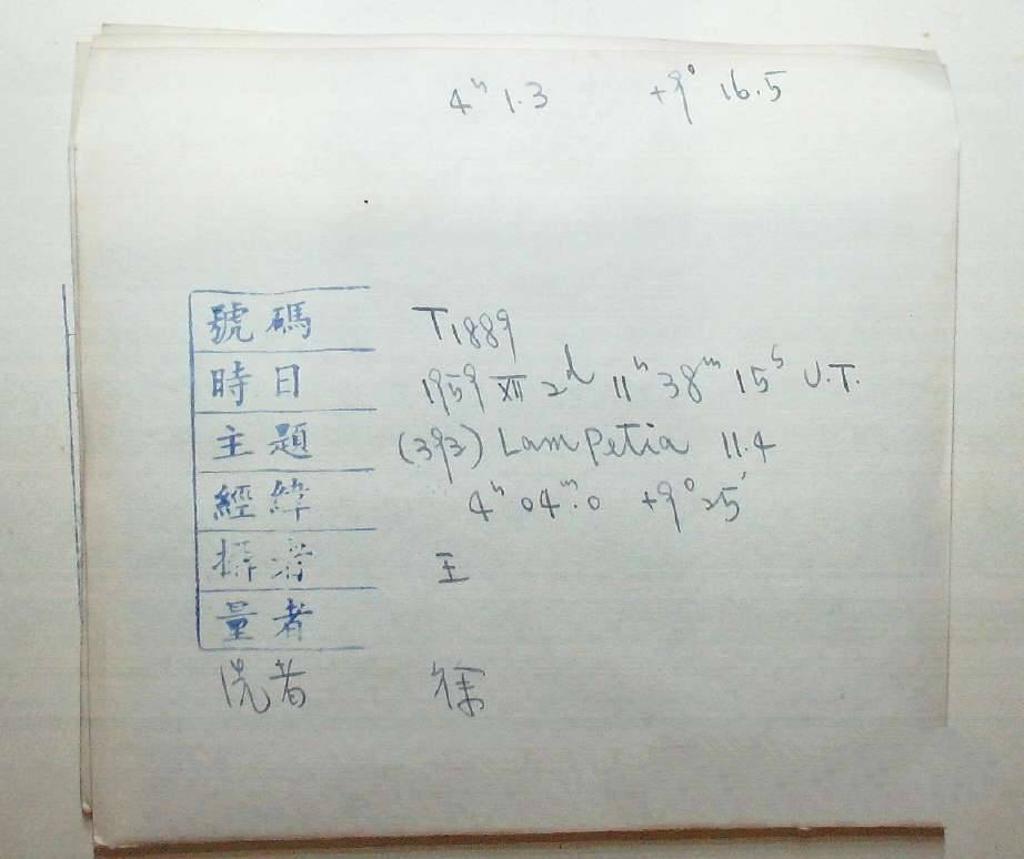 4ʰ 1.3 +9° 16.5
號碼 T1889
時日 1959 XII 2ᵈ 11ʰ 38ᵐ 15ˢ U.T.
主題 (393) Lampetia 11.4
經緯 4ʰ 04ᵐ.0 +9° 25'
攝者 王
量者
洗者 徐